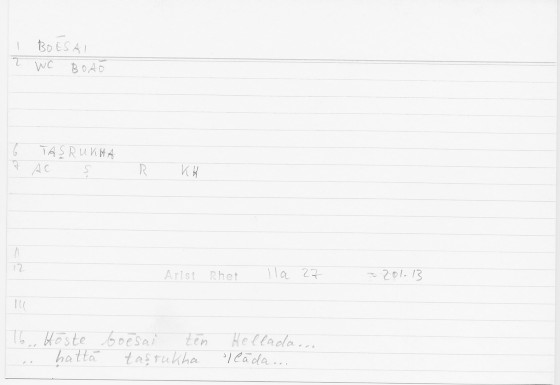 1 BOĒSAI
2 WC BOAŌ
6 TAṢRUKHA
7 AC Ṣ R KH
11
12 Arist Rhet 11a 27 = 201.13
14
16 .. Hōste boēsai tēn Hellada...
.. ḥattā taṣrukha ʿlāda...